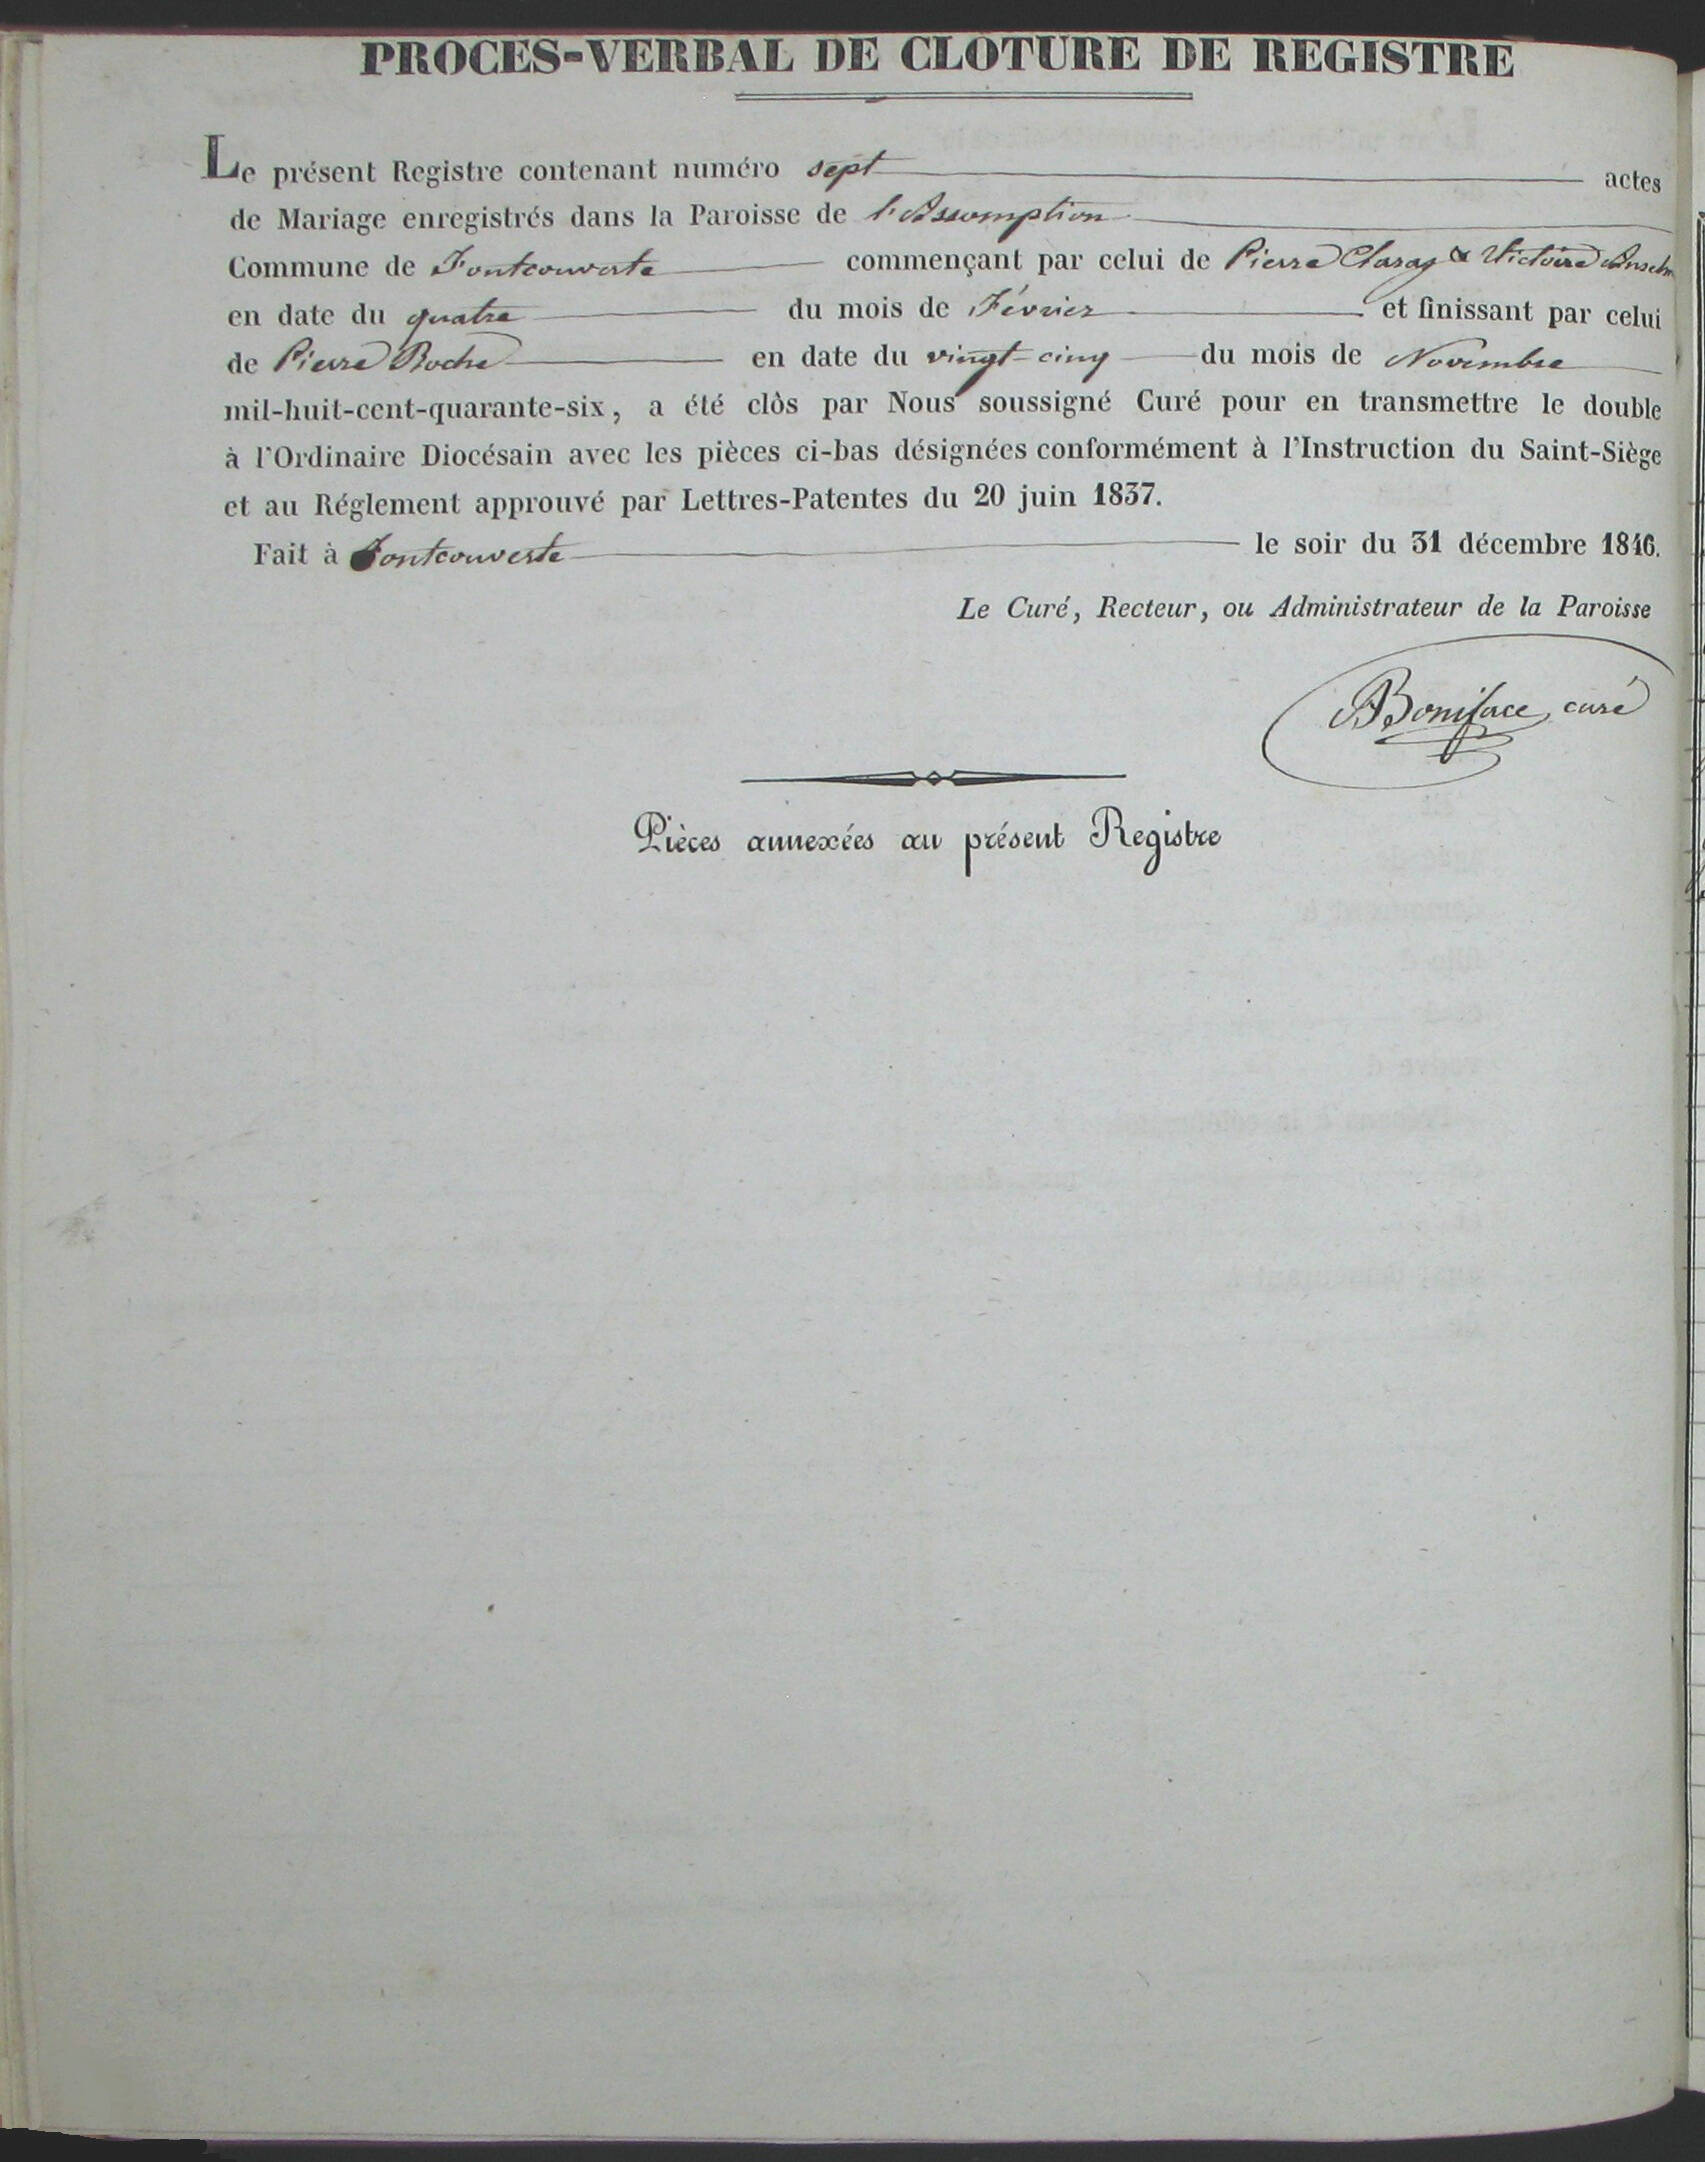 PROCES-VERBAL DE CLOTURE DE REGISTRE
Le présent Registre contenant numéro sept actes
de Mariage enregistrés dans la Paroisse de l'Assomption
Commune de Fontcouverte commençant par celui de Pierre Claraz & Victoire Anselm
en date du quatre du mois de Février et finissant par celui
de Pierre Boche en date du vingt-cinq du mois de Novembre
mil-huit-cent-quarante-six, a été clòs par Nous soussigné Curé pour en transmettre le double
à l'Ordinaire Diocésain avec les pièces ci-bas désignées conformément à l'Instruction du Saint-Siège
et au Réglement approuvé par Lettres-Patentes du 20 juin 1837.
Fait à Fontcouverte le soir du 31 décembre 1846.
Le Curé, Recteur, ou Administrateur de la Paroisse
Boniface, curé
Pièces annexées au présent Registre